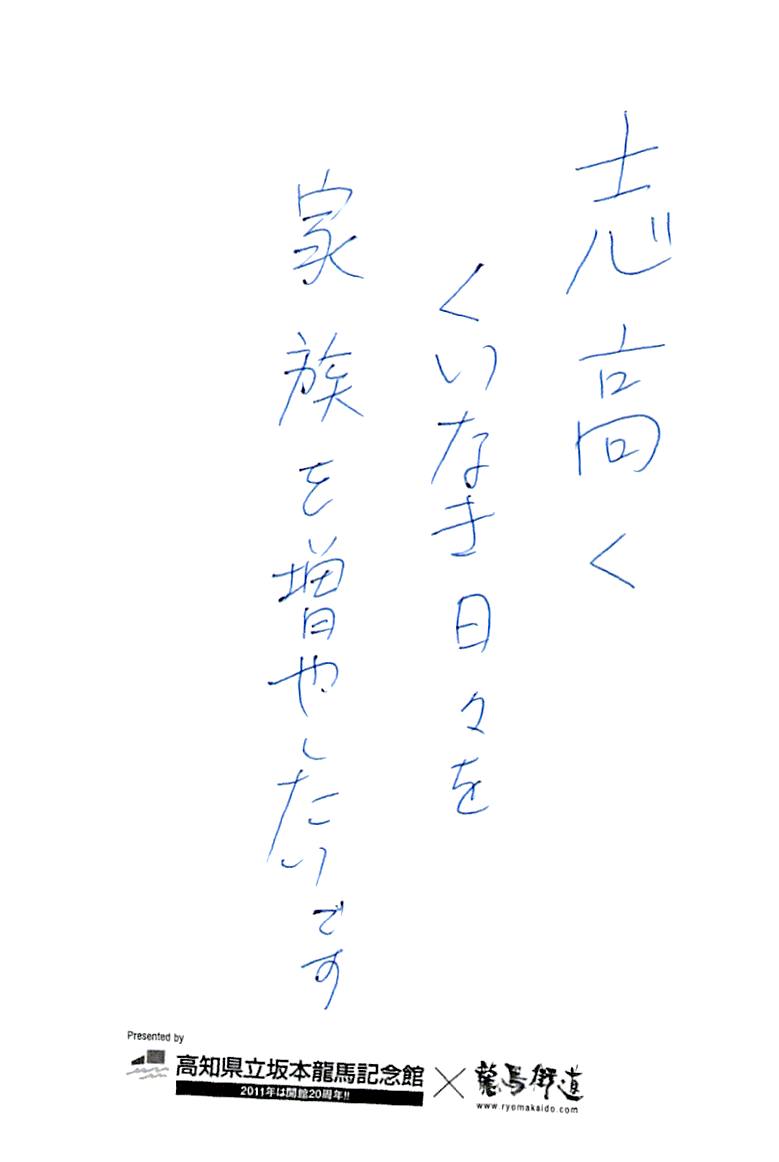 志高く
くいなき日々を
家族を増やしたいです
Presented by
高知県立坂本龍馬記念館
2011年は開館20周年!!
×
龍馬街道
www.ryomakaido.com